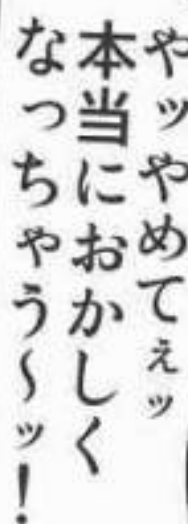 やッやめてぇッ
本当におかしく
なっちゃう～ッ！